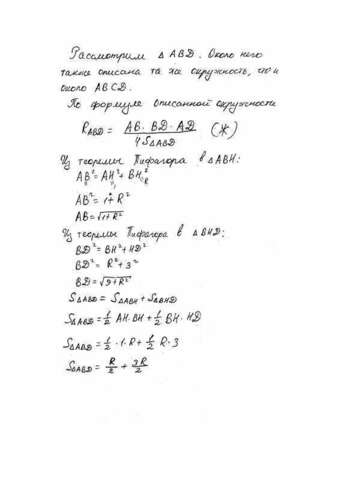 Рассмотрим Δ ABD. Около него
также описана та же окружность, что и
около ABCD.
По формуле описанной окружности
R_ABD = AB · BD · AD / 4S_ΔABD (Ж)
Из теоремы Пифагора в ΔABH:
AB² = AH² + BH²
1 R
AB² = 1² + R²
AB = √1+R²
Из теоремы Пифагора в ΔBHD:
BD² = BH² + HD²
BD² = R² + 3²
BD = √9+R²
S_ΔABD = S_ΔABH + S_ΔBHD
S_ΔABD = 1/2 AH · BH + 1/2 BH · HD
S_ΔABD = 1/2 · 1 · R + 1/2 R · 3
S_ΔABD = R/2 + 3R/2